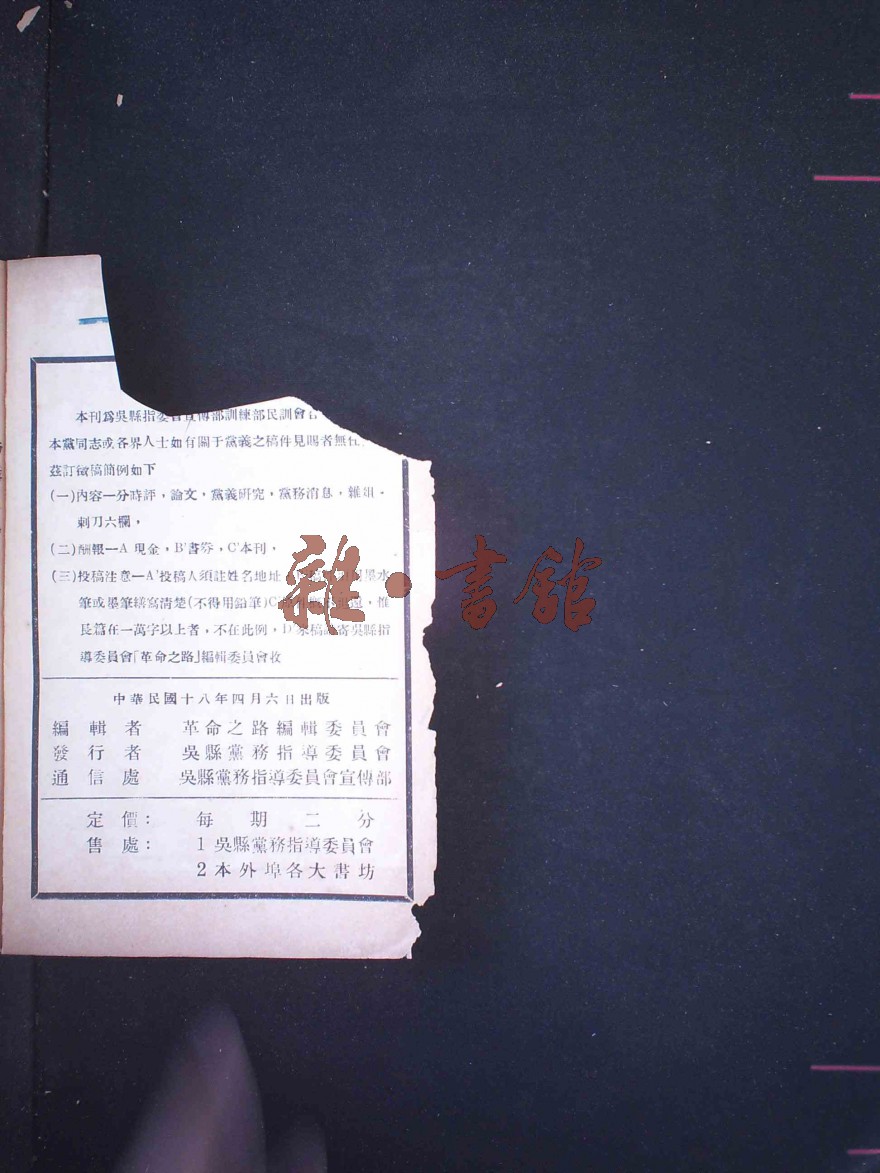 本刊爲吳縣指委會宣傳部訓練部民訓會合
本黨同志或各界人士如有關于黨義之稿件見賜者無任
茲訂徵稿簡例如下
(一)內容—分時評，論文，黨義研究，黨務消息，雜俎，
剌刀六欄，
(二)酬報—A 現金，B'書劵，C'本刊，
(三)投稿注意—A'投稿人須註姓名地址 墨水
筆或墨筆繕寫清楚(不得用鉛筆)C 惟
長篇在一萬字以上者，不在此例，D'來稿 寄吳縣指
導委員會「革命之路」編輯委員會收
中華民國十八年四月六日出版
編輯者 革命之路編輯委員會
發行者 吳縣黨務指導委員會
通信處 吳縣黨務指導委員會宣傳部
定價： 每期二分
售處： 1 吳縣黨務指導委員會
2 本外埠各大書坊
雜·書館